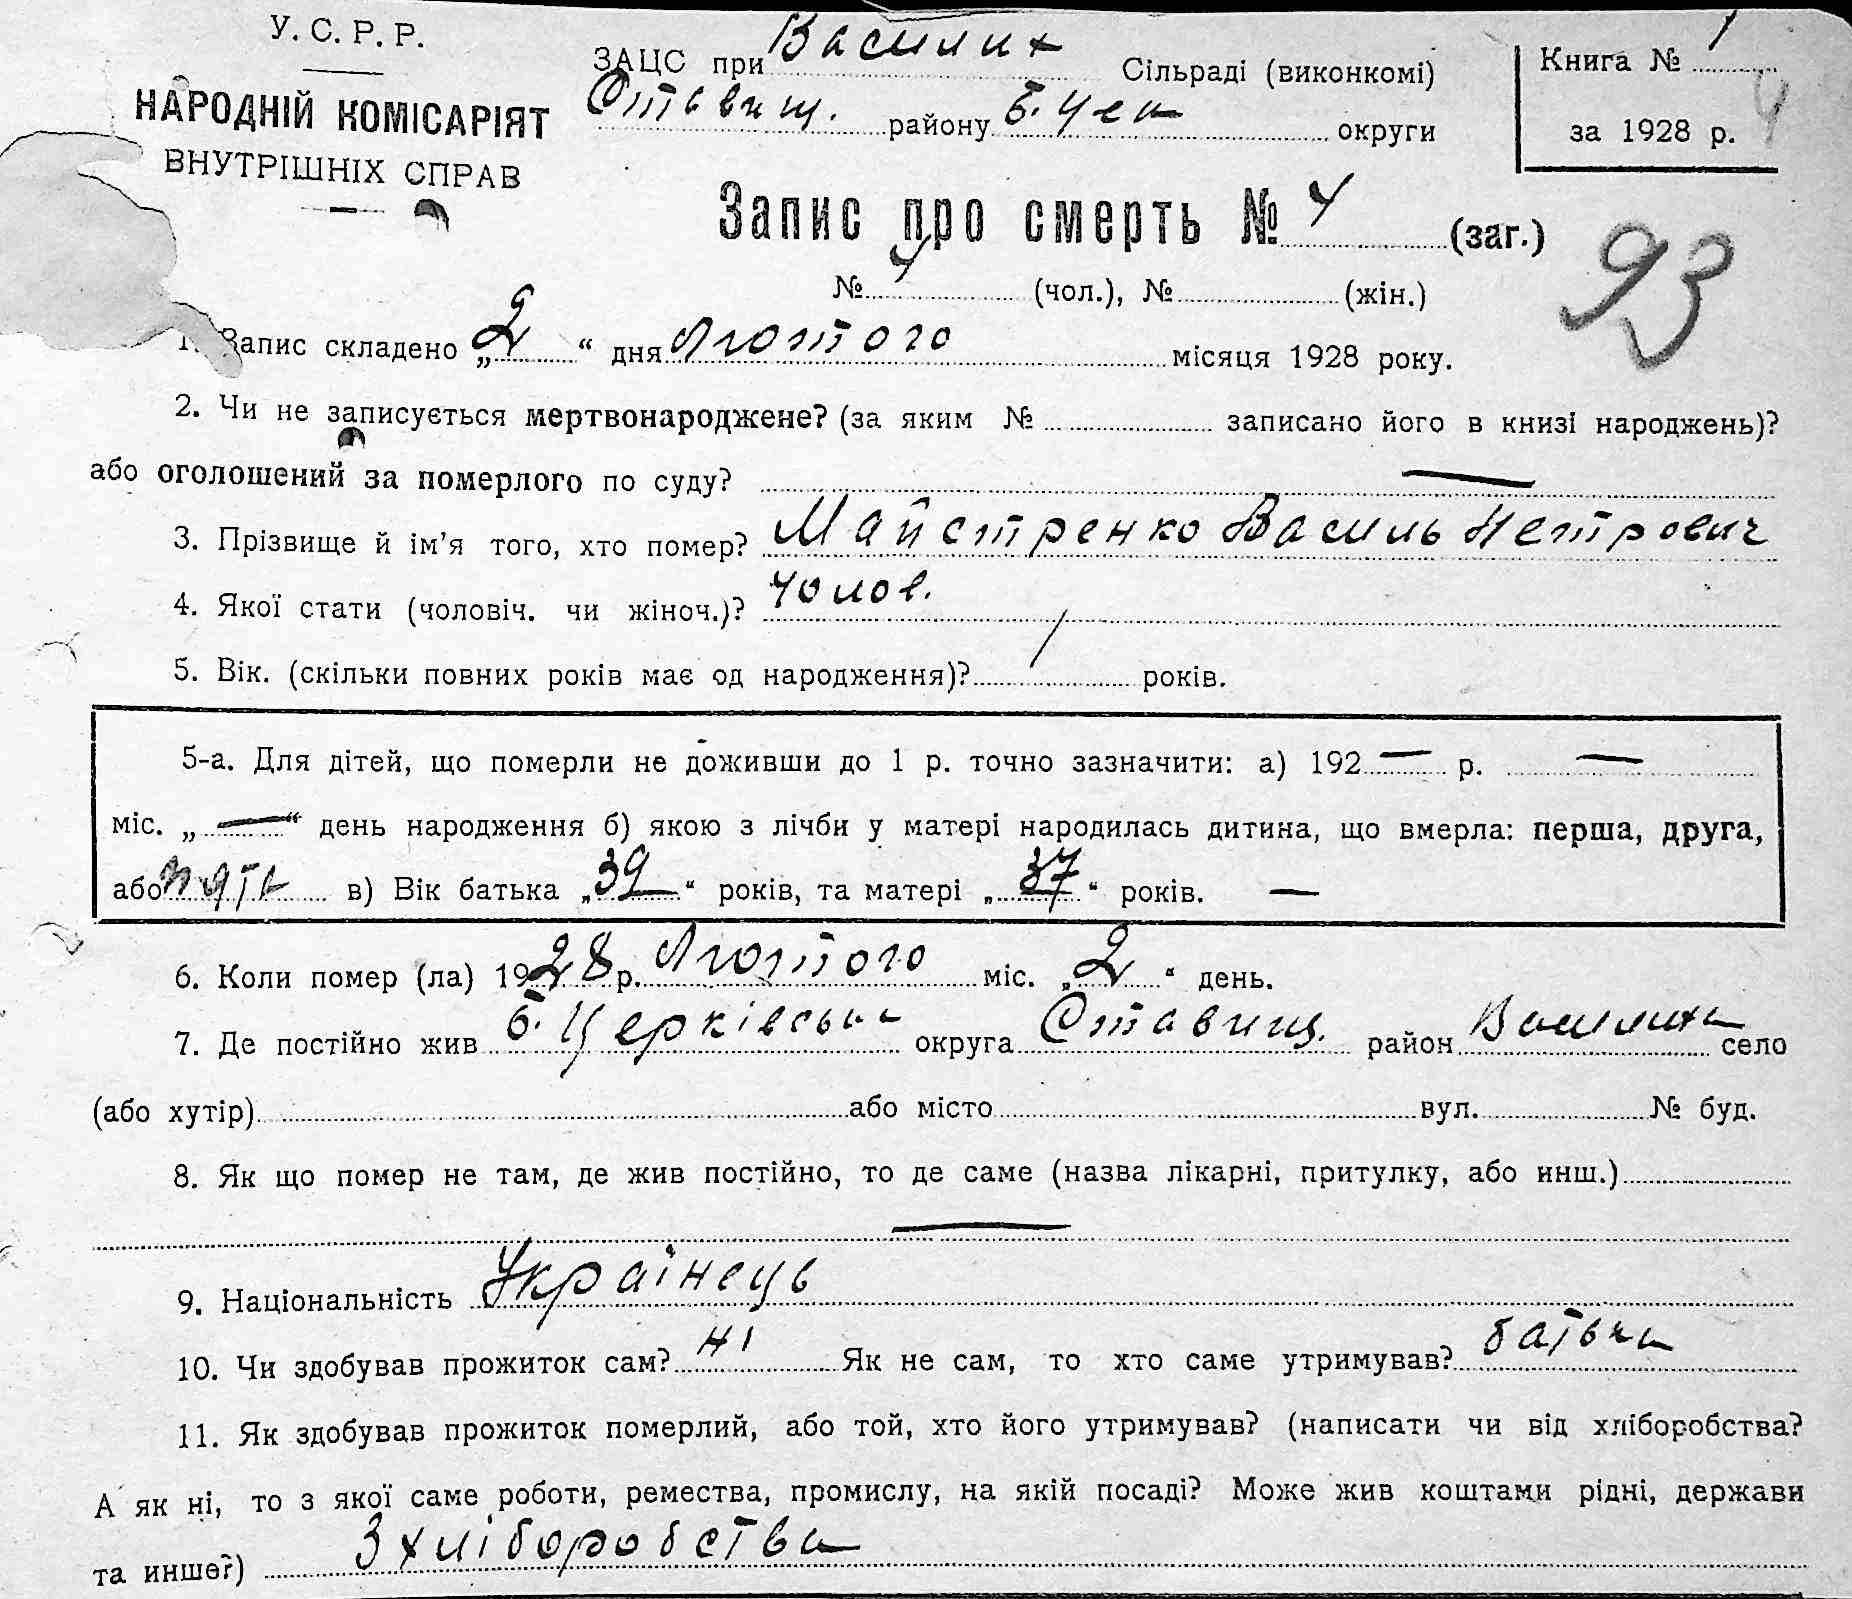 У. С. Р. Р.
НАРОДНІЙ КОМІСАРІЯТ
ВНУТРІШНІХ СПРАВ
ЗАЦС при Василих Сільраді (виконкомі)
Ставищ. району Б. Цек округи
Книга № 1
за 1928 р.
4
Запис про смерть № 4 (заг.)
93
№ 4 (чол.), № (жін.)
1. Запис складено „2“ дня Лютого місяця 1928 року.
2. Чи не записується мертвонароджене? (за яким № записано його в книзі народжень)?
або оголошений за померлого по суду? —
3. Прізвище й ім'я того, хто помер? Майстренко Василь Петрович
4. Якої стати (чоловіч. чи жіноч.)? чолов.
5. Вік. (скільки повних років має од народження)? 1 років.
5-а. Для дітей, що померли не доживши до 1 р. точно зазначити: а) 192 — р. —
міс. „—“ день народження б) якою з лічби у матері народилась дитина, що вмерла: перша, друга,
або пять в) Вік батька „39“ років, та матері „37“ років. —
6. Коли помер (ла) 1928 р. Лютого міс. „2“ день.
7. Де постійно жив Б. Церківська округа Ставищ. район Василиха село
(або хутір) або місто вул. № буд.
8. Як що помер не там, де жив постійно, то де саме (назва лікарні, притулку, або инш.)
—
9. Національність Українець
10. Чи здобував прожиток сам? ні Як не сам, то хто саме утримував? батьки
11. Як здобував прожиток померлий, або той, хто його утримував? (написати чи від хліборобства?
А як ні, то з якої саме роботи, ремества, промислу, на якій посаді? Може жив коштами рідні, держави
та инше?) З хліборобства